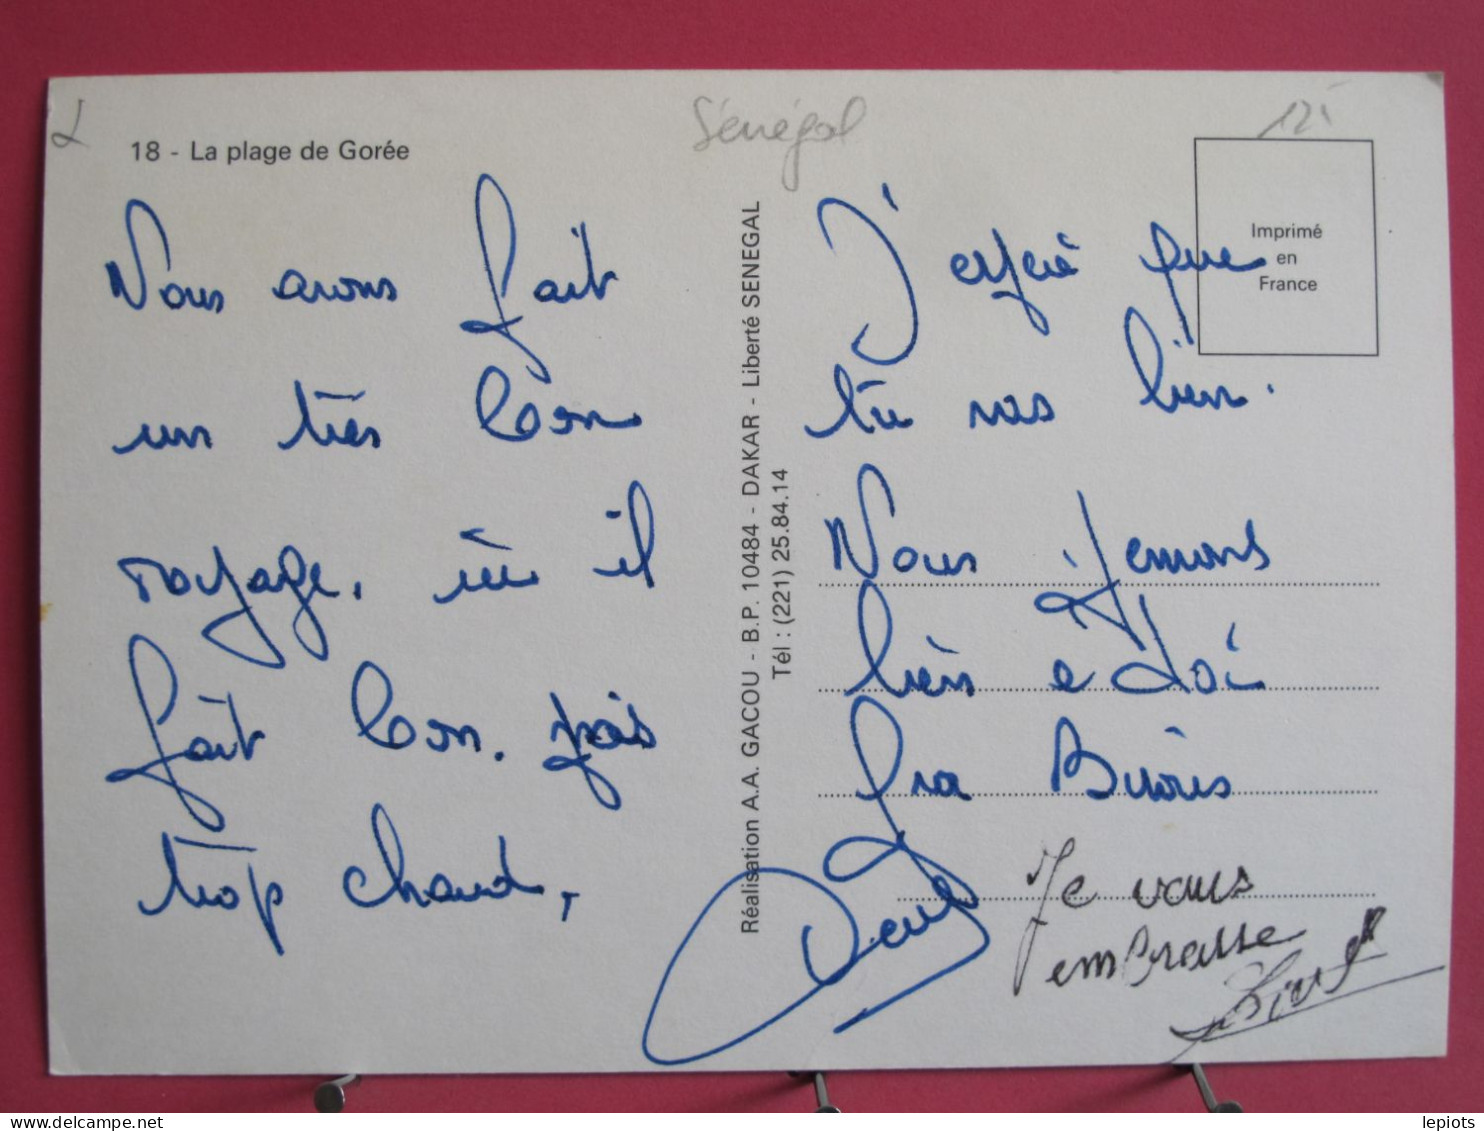 Sénégal
18 - La plage de Gorée
Imprimé
en
France
Nous avons fait
un très bon
voyage, ici il
fait bon. pas
trop chaud,
Réalisation A.A. GACOU - B.P. 10484 - DAKAR - Liberté SENEGAL
Tél : (221) 25.84.14
J'espère que
tu vas bien.
Nous pensons
bien a toi
Gros Bisous
Je vous
embrasse
lepiots